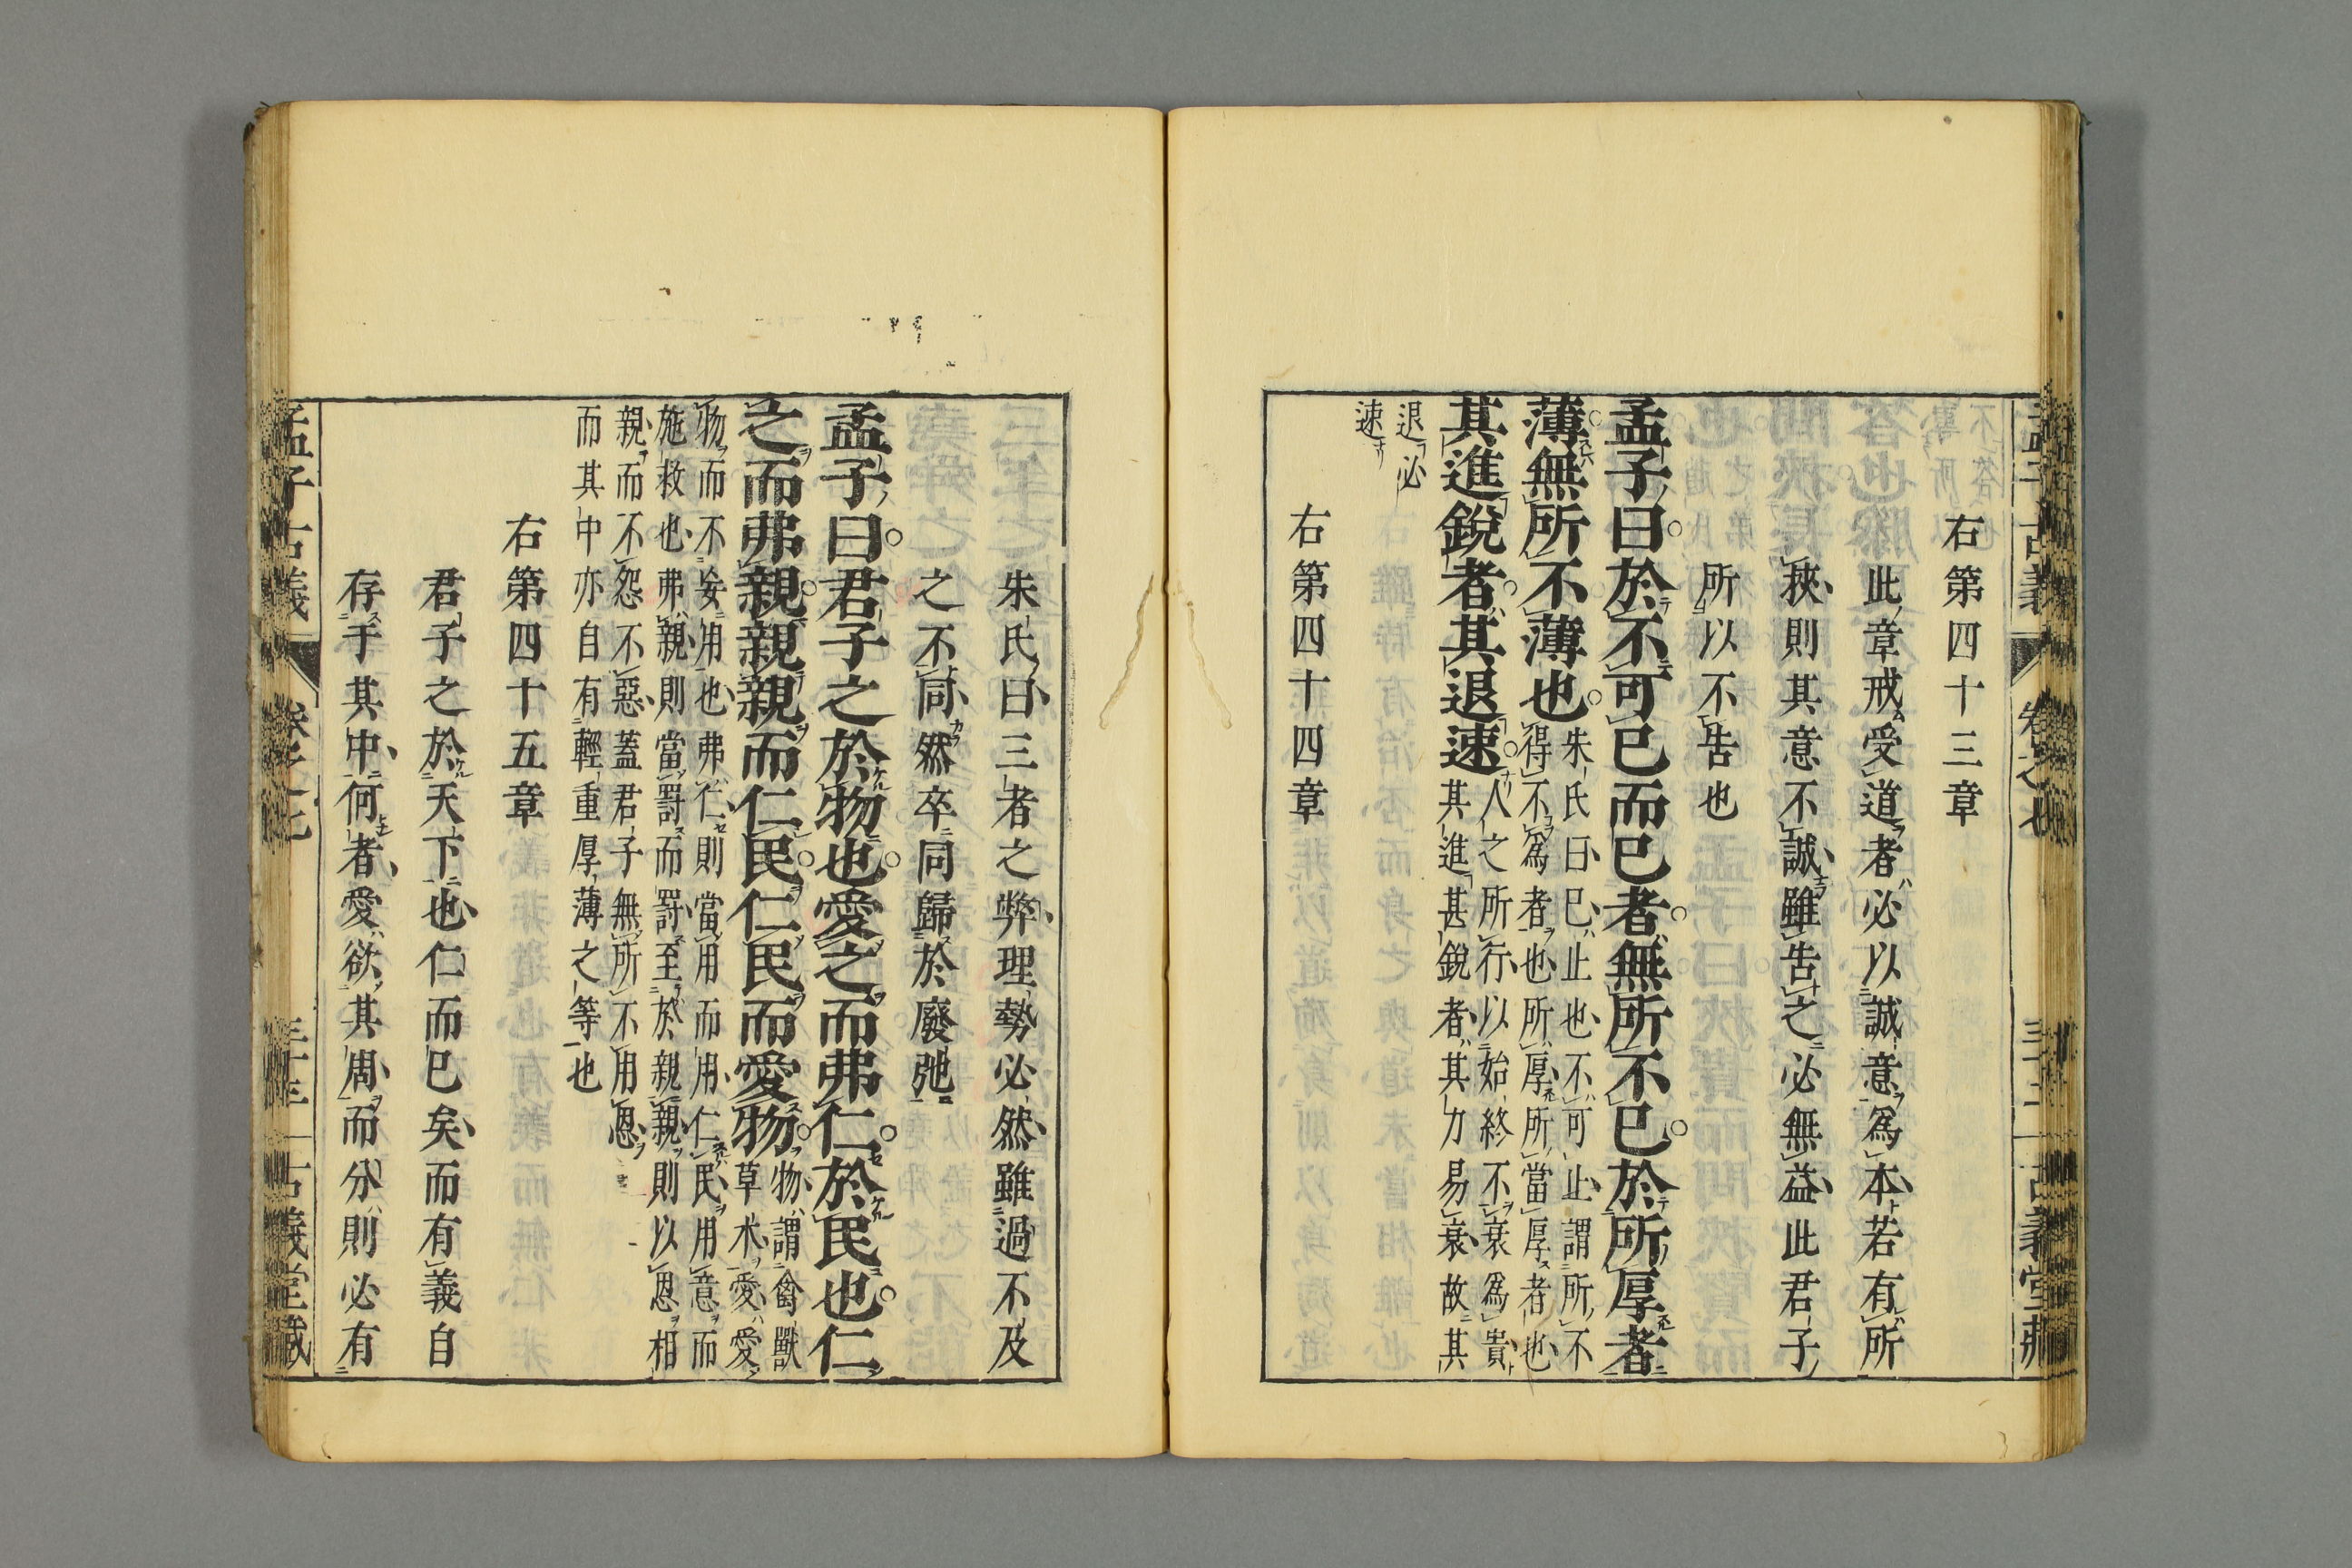 右第四十三章
此章戒受道者必以誠意爲本若有所
挾則其意不誠雖告之必無益此君子
所以不告也
孟子曰於不可已而已者無所不已於所厚者
薄無所不薄也
朱氏曰已止也不可止謂所不
得不爲者也所厚所當厚者也
其進銳者其退速
人之所行以始終不衰爲貴
其進甚銳者其力易衰故其
退必
速
右第四十四章
孟子古義
卷之七
古義堂藏
朱氏曰三者之弊理勢必然雖過不及
之不同然卒同歸於廢弛
孟子曰君子之於物也愛之而弗仁於民也仁
之而弗親親親而仁民仁民而愛物
物謂禽獸
草木愛愛
物而不妄用也弗仁則當用而用仁民用意而
施救也弗親則當罸而罸至於親親則以恩相
親而不怨不惡蓋君子無所不用恩
而其中亦自有輕重厚薄之等也
右第四十五章
君子之於天下也仁而已矣而有義自
存于其中何者愛欲其周而分則必有
孟子古義
卷之七
古義堂藏